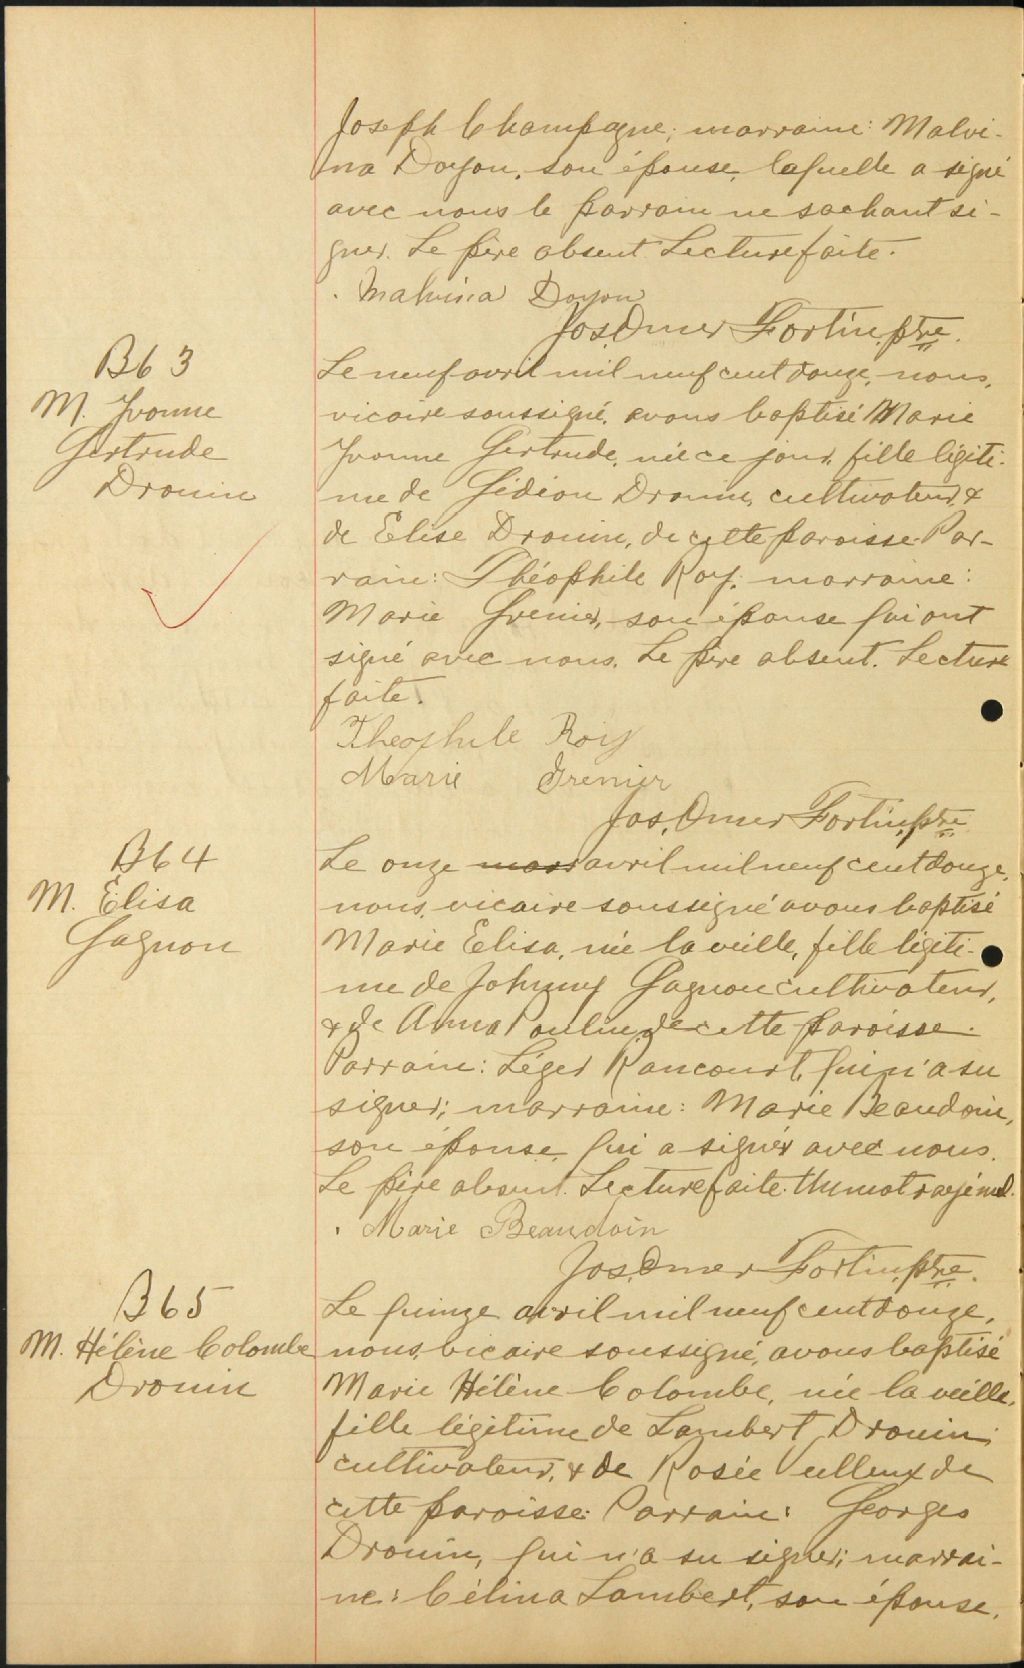 Joseph Champagne; marraine: Malvi-
na Doyon, son épouse, laquelle a signé
avec nous le parrain ne sachant si-
gner. Le père absent Lecture faite.
Malvina Doyon
Jos. Omer Fortin, ptre.
B63
M. Yvonne
Gertrude
Drouin
Le neuf avril mil neuf cent douze, nous,
vicaire soussigné, avons baptisé Marie
Yvonne Gertrude, née ce jour, fille légiti-
me de Gédéon Drouin, cultivateur, &
de Elise Drouin, de cette paroisse. Par-
rain: Théophile Roy; marraine:
Marie Grenier, son épouse qui ont
signé avec nous. Le père absent. Lecture
faite.
Theophile Roiy
Marie Grenier
Jos. Omer Fortin, ptre
B64
M. Elisa
Gagnon
Le onze mars avril mil neuf cent douze,
nous, vicaire soussigné avons baptisé
Marie Elisa, née la veille, fille légiti-
me de Johnny Gagnon cultivateur,
& de Anna Poulin, de cette paroisse.
Parrain: Léger Rancourt, qui n'a su
signer; marraine: Marie Beaudoin,
son épouse, qui a signé avec nous.
Le père absent. Lecture faite. Un mot rayé nul.
Marie Beaudoin
Jos. Omer Fortin, ptre.
B65
M. Hélène Colombe
Drouin
Le quinze avril mil neuf cent douze,
nous, vicaire soussigné, avons baptisé
Marie Hélène Colombe, née la veille,
fille légitime de Lambert Drouin,
cultivateur, & de Rosée Veilleux de
cette paroisse. Parrain: Georges
Drouin, qui n'a su signer; marrai-
ne: Célina Lambert, son épouse,